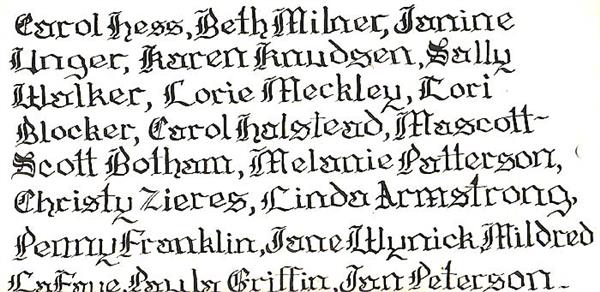 Carol Hess, Beth Milner, Janine
Unger, Karen Knudsen, Sally
Walker, Lorie Meckley, Lori
Blocker, Carol Halstead, Mascott-
Scott Botham, Melanie Patterson,
Christy Zieres, Linda Armstrong,
Penny Franklin, Jane Wynick, Mildred
LaFave, Paula Griffin, Jan Peterson-